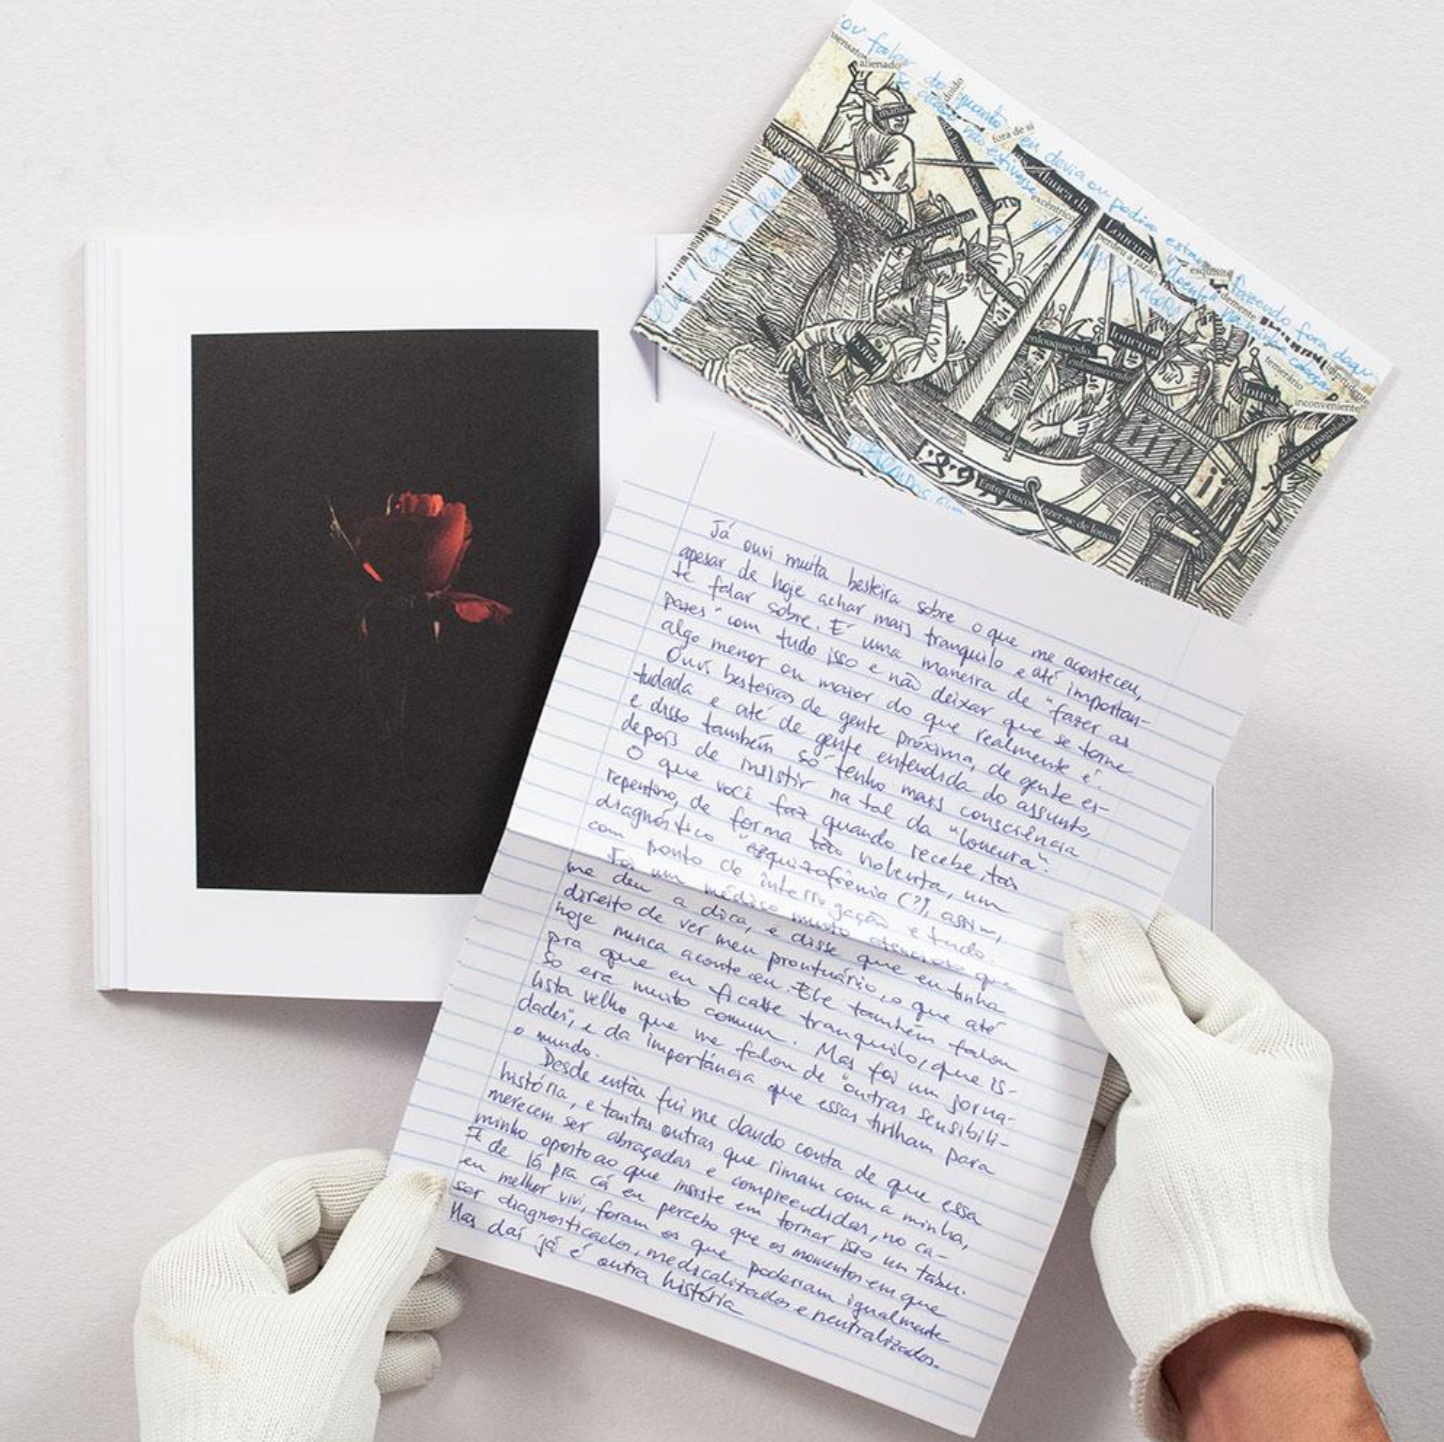 ou falar do quanto eu devia ou podia estar fazendo fora daqui
se acaso não estivesse
"doente" na minha cabeça.
alienado
doido
fora de si
excêntrico
Loucura
perdeu a razão
esquisito
demente
temerário
inconveniente
enlouquecido
loucura
Entre loucos, fazer-se de louco.
Já ouvi muita besteira sobre o que me aconteceu,
apesar de hoje achar mais tranquilo e até importan-
te falar sobre. É uma maneira de "fazer as
pazes" com tudo isso e não deixar que se torne
algo menor ou maior do que realmente é.
Ouvi besteiras de gente próxima, de gente es-
tudada e até de gente entendida do assunto,
e disso também só tenho mais consciência
depois de insistir na tal da "loucura".
O que você faz quando recebe, tão
repentino, de forma tão violenta, um
diagnóstico "esquizofrenia (?), assim,
com ponto de interrogação e tudo.
Foi um médico muito atencioso que
me deu a dica, e disse que eu tinha
direito de ver meu prontuário, o que até
hoje nunca aconteceu. Ele também falou
pra que eu ficasse tranquilo, que is-
so era muito comum. Mas foi um jorna-
lista velho que me falou de "outras sensibili-
dades", e da importância que essas tinham para
o mundo.
Desde então fui me dando conta de que essa
história, e tantas outras que rimam com a minha,
merecem ser abraçadas e compreendidas, no ca-
minho oposto ao que insiste em tornar isto um tabu.
E de lá pra cá eu percebo que os momentos em que
eu melhor vivi, foram os que poderiam igualmente
ser diagnosticados, medicalizados e neutralizados.
Mas daí já é outra história